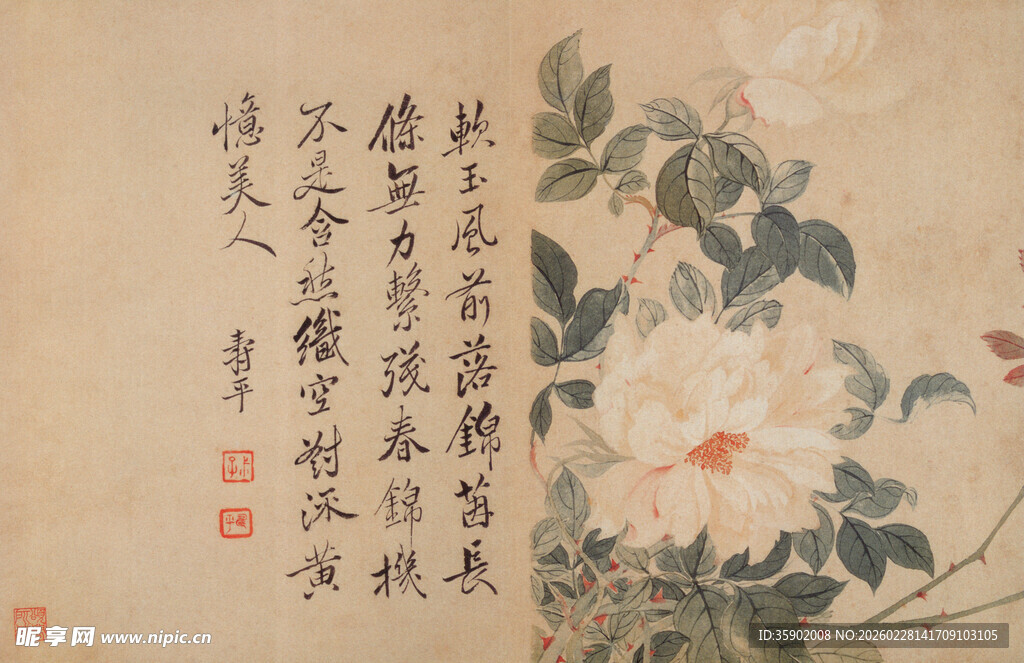 軟玉風前落錦茵長
條無力繫殘春錦機
不是含愁織空對流黃
憶美人
壽平
昵享网 www.nipic.cn
ID:35902008 NO:20260228141709103105